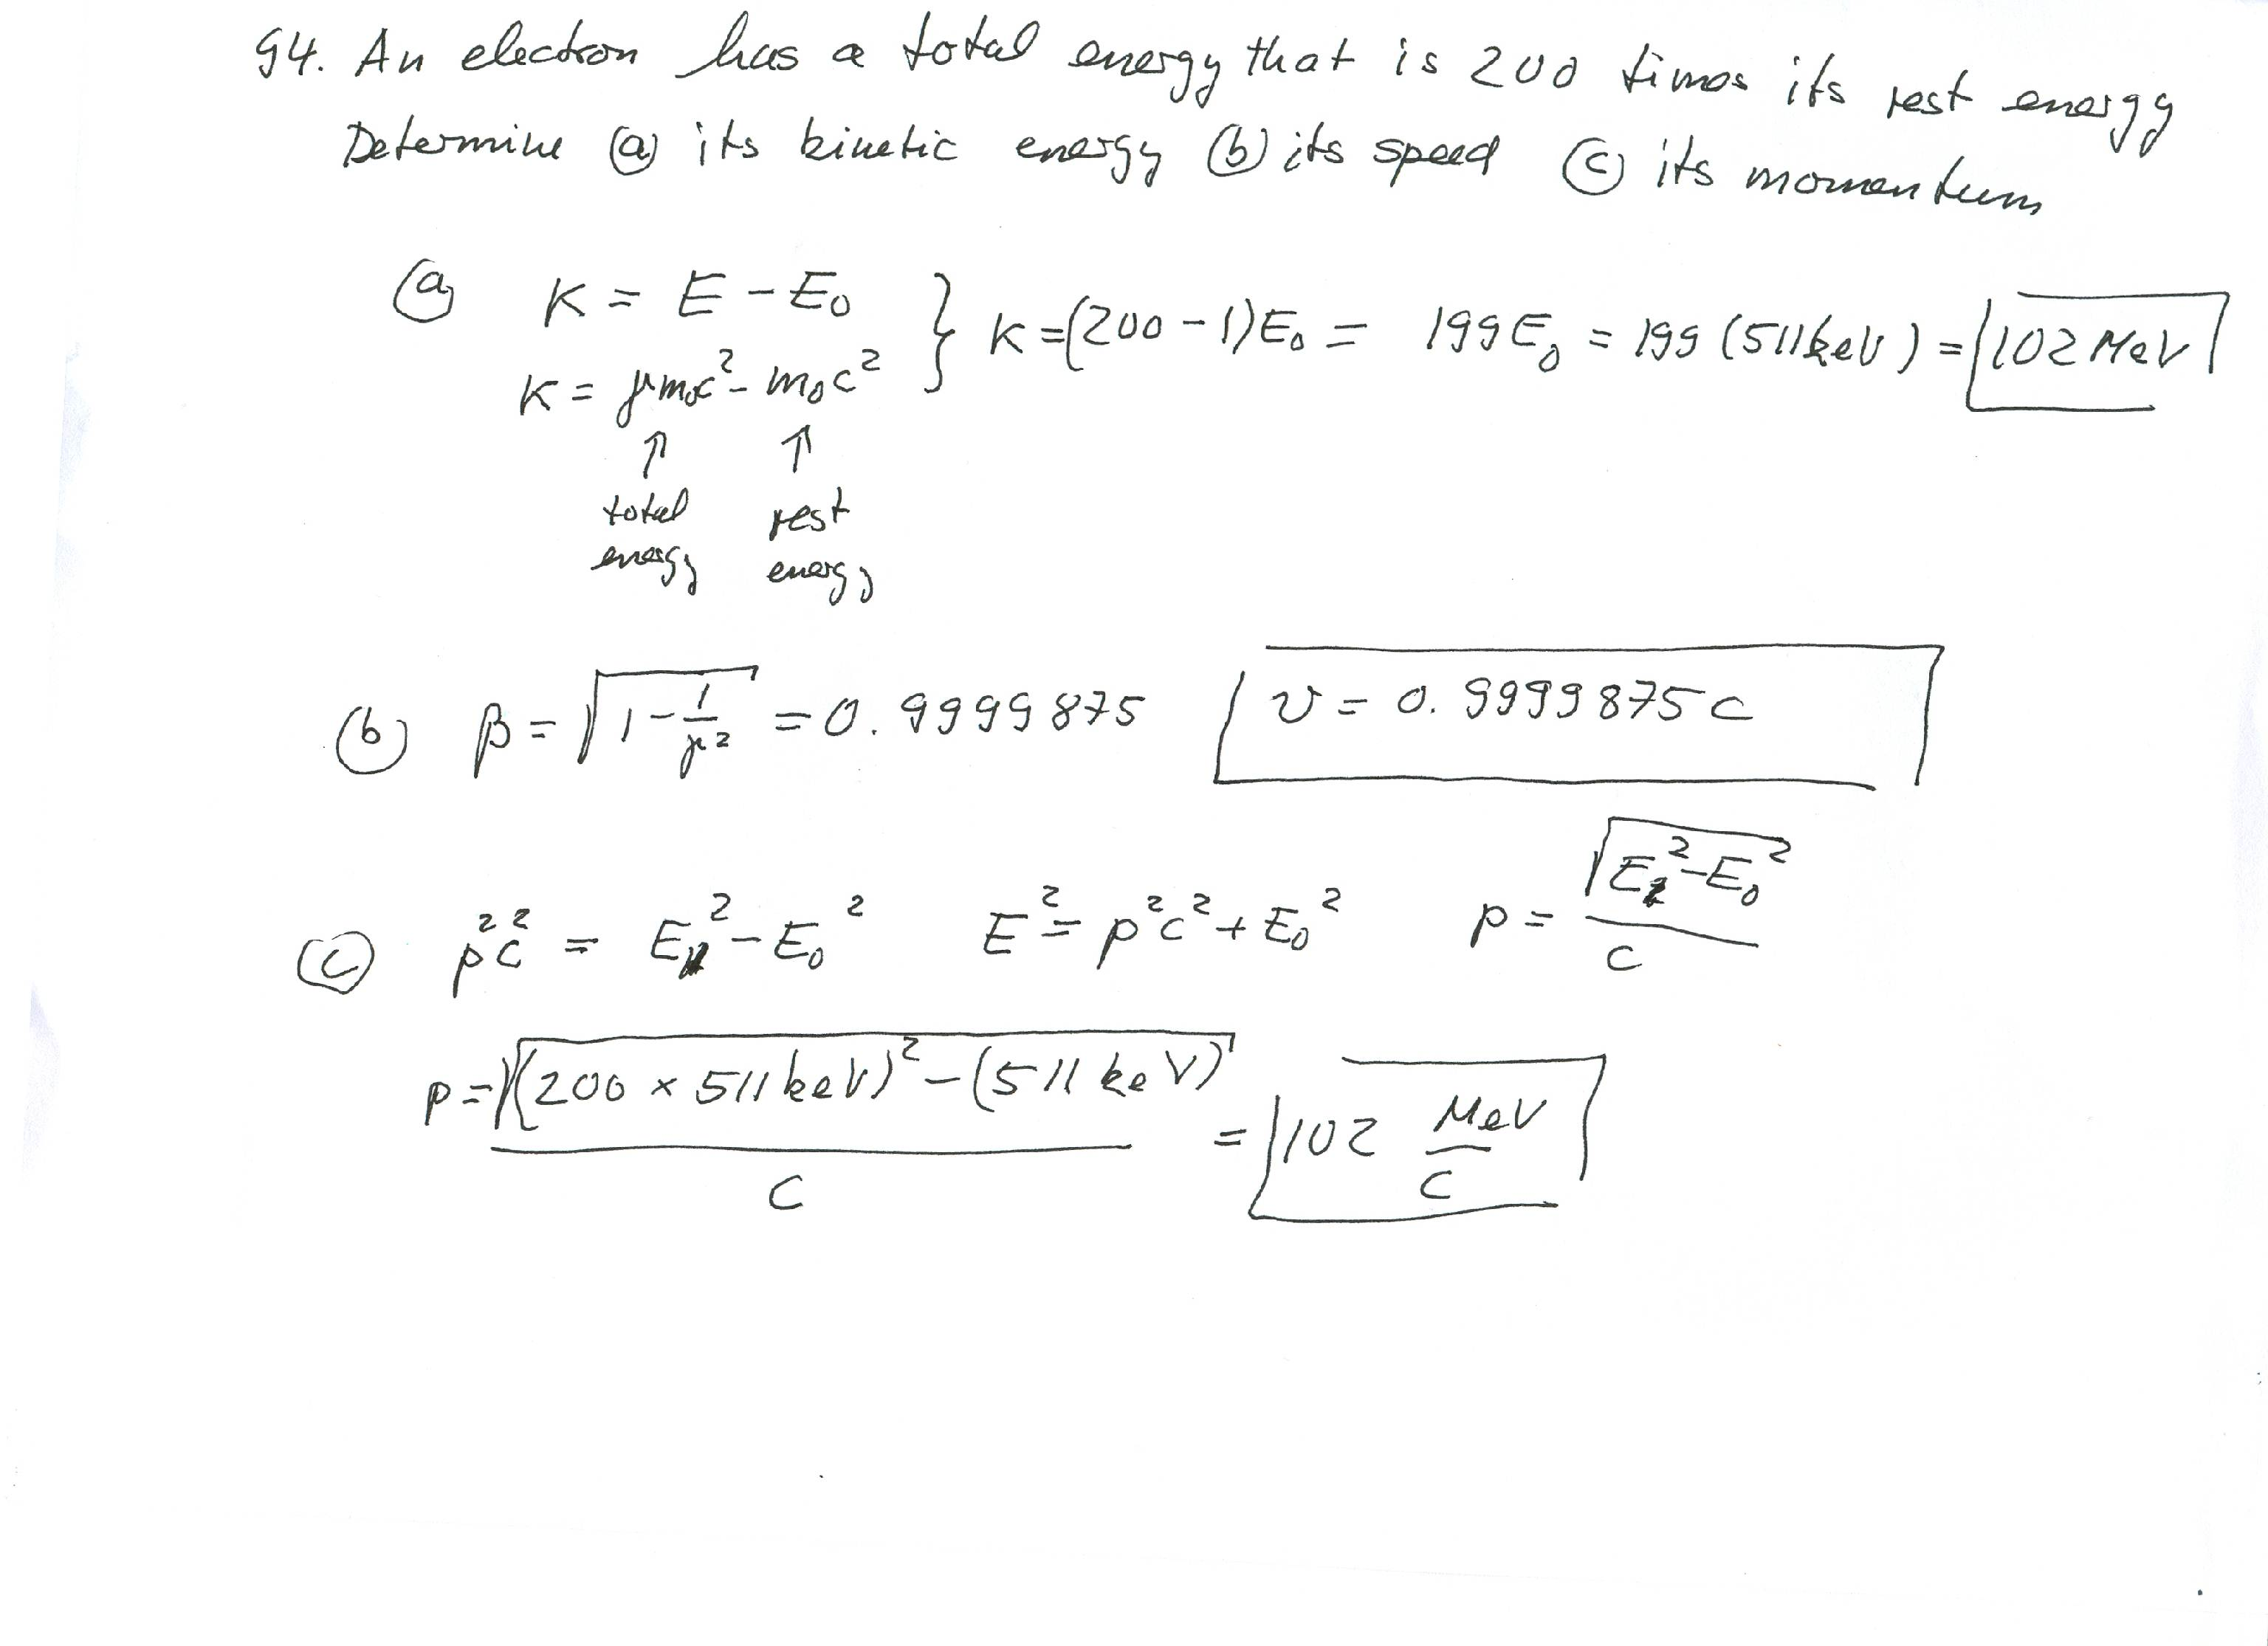 94. An electron has a total energy that is 200 times its rest energy
Determine (a) its kinetic energy (b) its speed (c) its momentum
(a) K = E - E₀ } K = (200 - 1)E₀ = 199E₀ = 199 (511keV) = 102 MeV
K = γm₀c² - m₀c²
↑ ↑
total rest
energy energy
(b) β = √(1 - 1/γ²) = 0.9999875 v = 0.9999875c
(c) p²c² = E² - E₀² E² = p²c² + E₀² p = √(E² - E₀²) / c
p = √((200 × 511keV)² - (511 keV)²) / c = 102 MeV/c